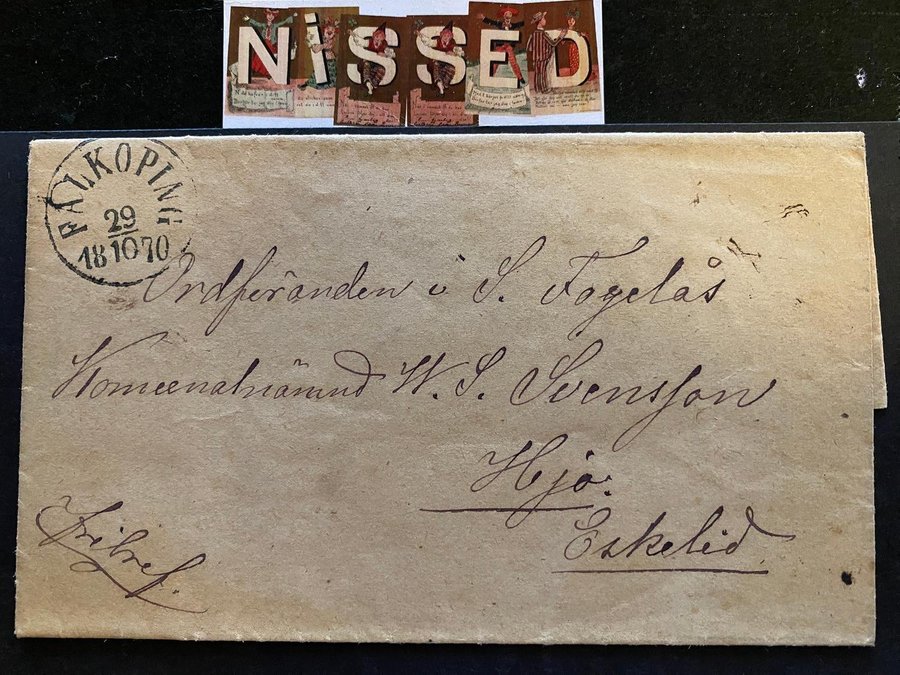 NISSED
FALKÖPING
29
18 10 70
Ordföranden i S. Fogelås
Komeenalnämnd W. S. Svensson
Hjo.
Eskelid
Fribref.